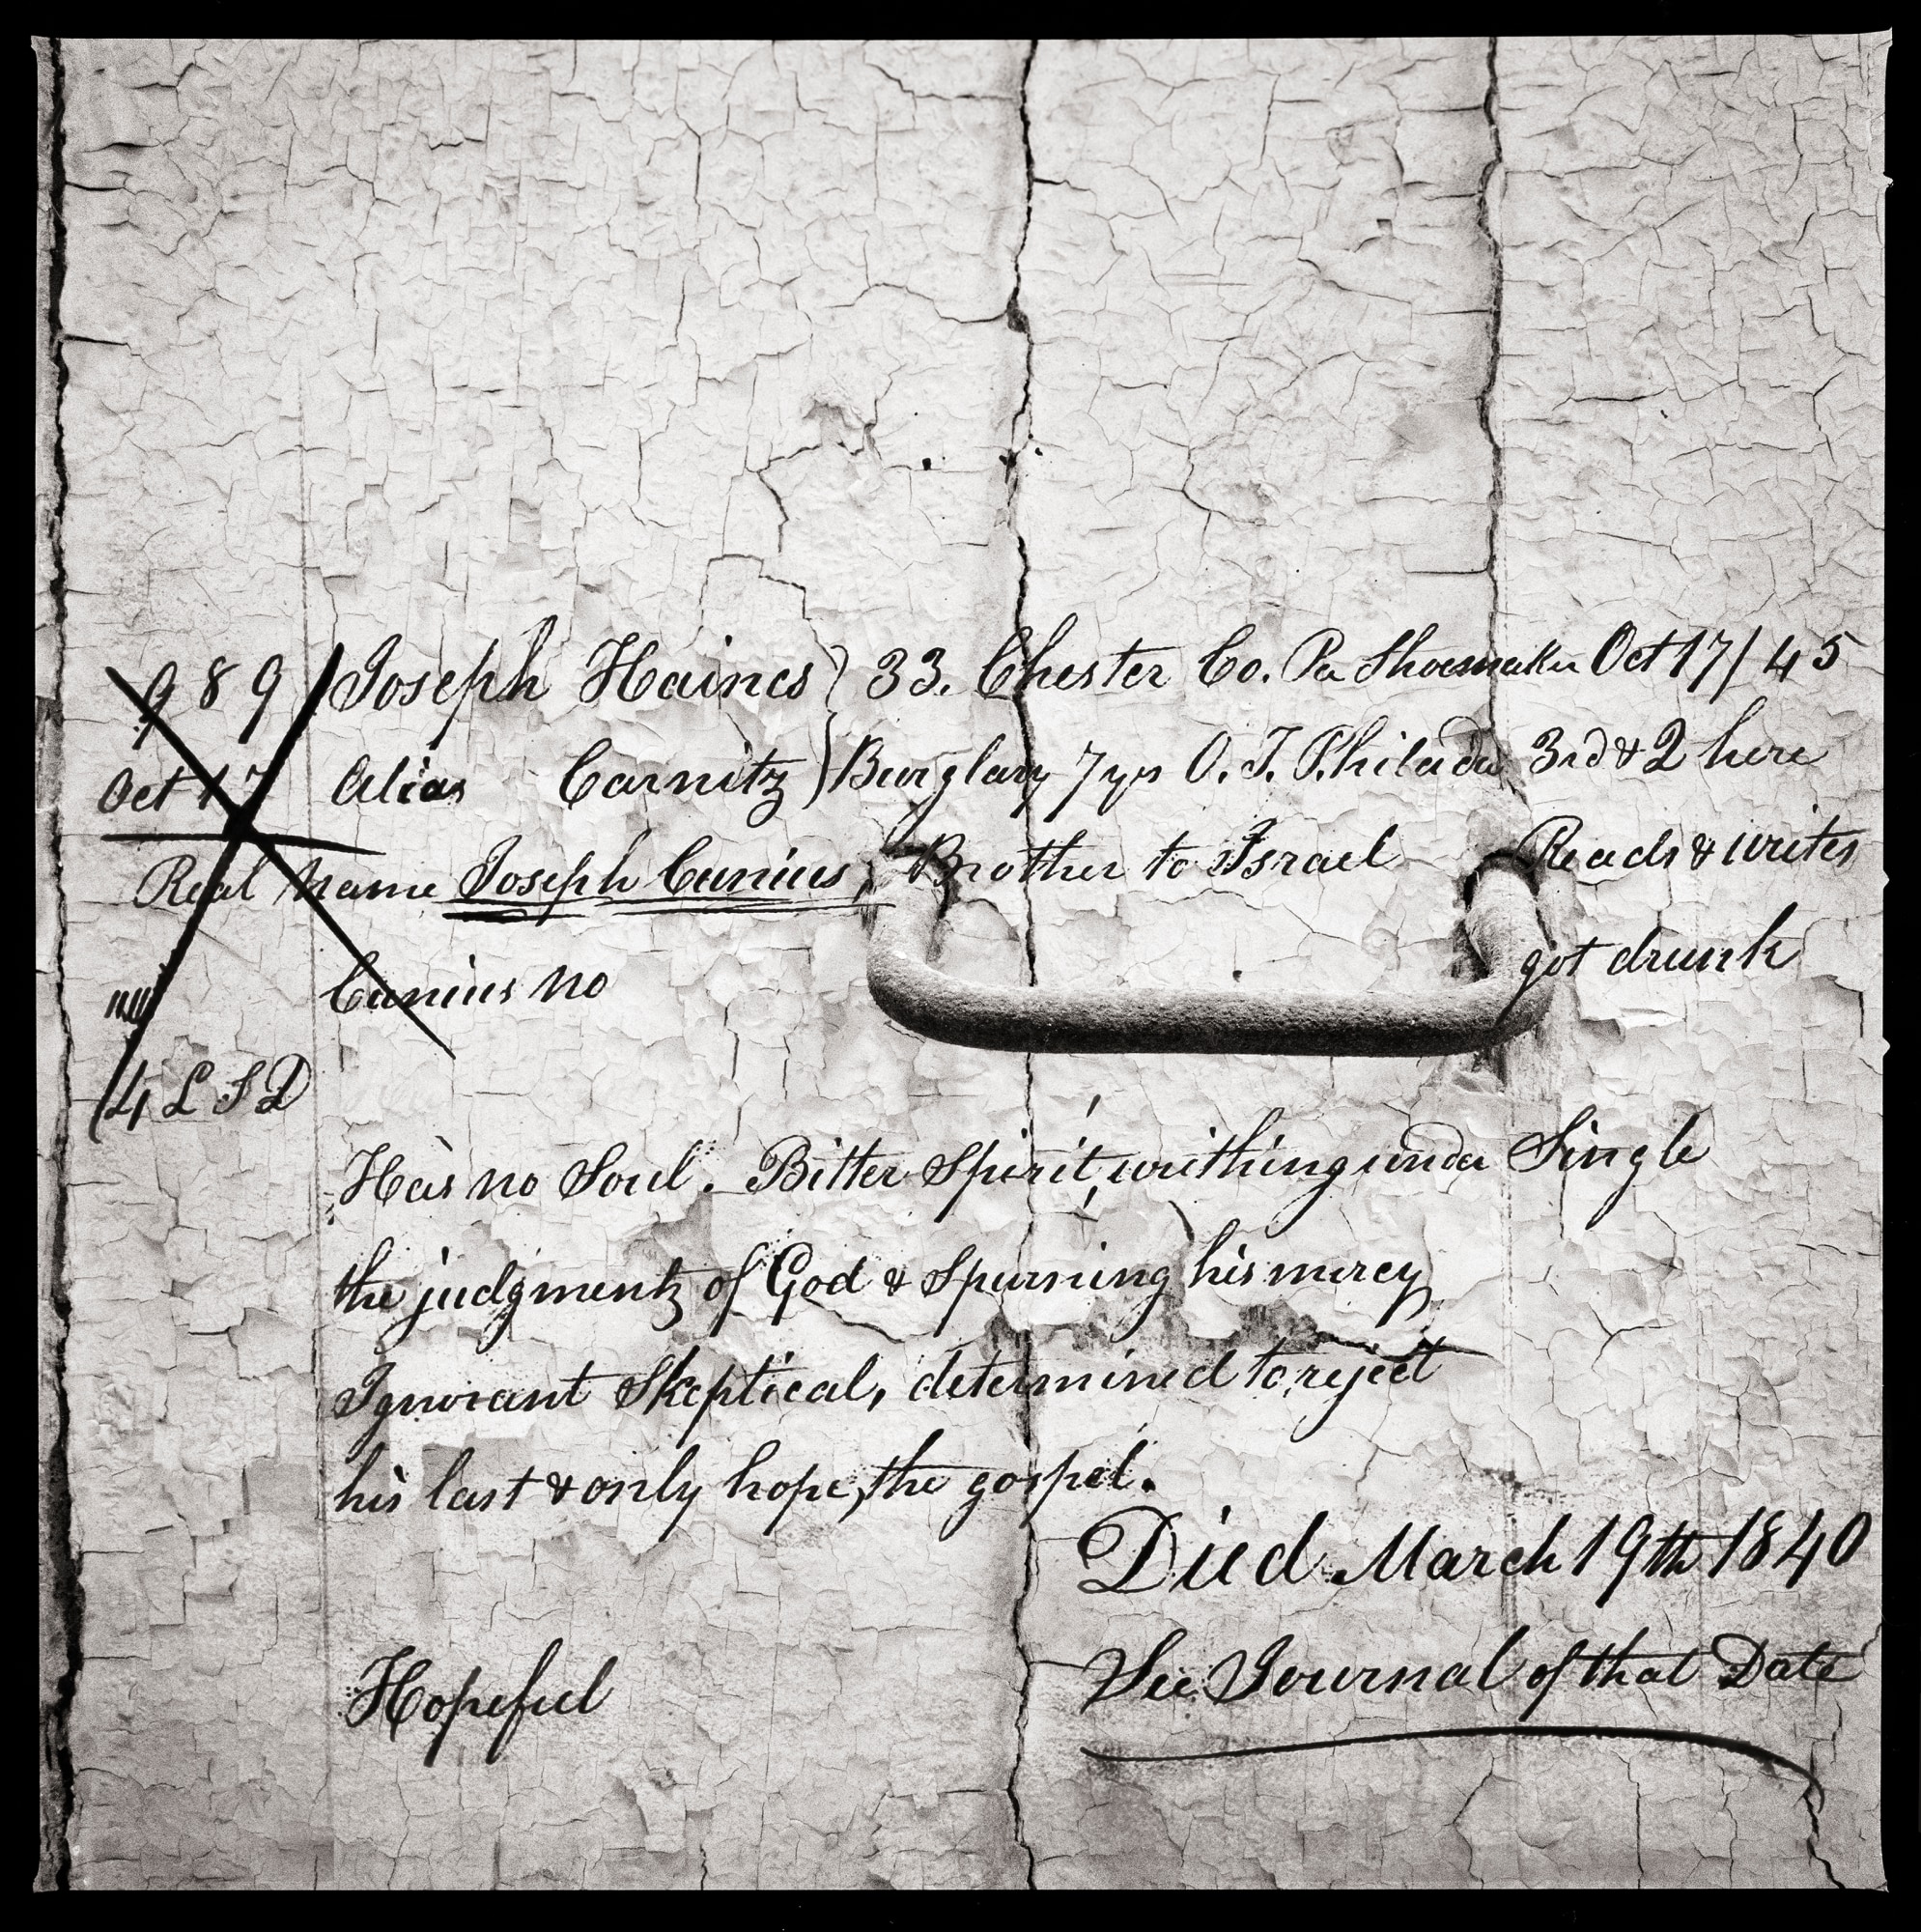 989 Joseph Haines } 33. Chester Co. Pa Shoemaker Oct 17/45
Oct 17 Alias Carnitz } Burglary 7 yrs O. T. Philada 3rd & 2 here
Real name Joseph Cunius, Brother to Israel Reads & writes
Cunius no got drunk
4 L S D
Has no Soul. Bitter Spirit, writhing under Single
the judgments of God & Spurning his mercy
Ignorant Skeptical, determined to reject
his last & only hope, the gospel.
Died March 19th 1840
Hopeful See Journal of that Date